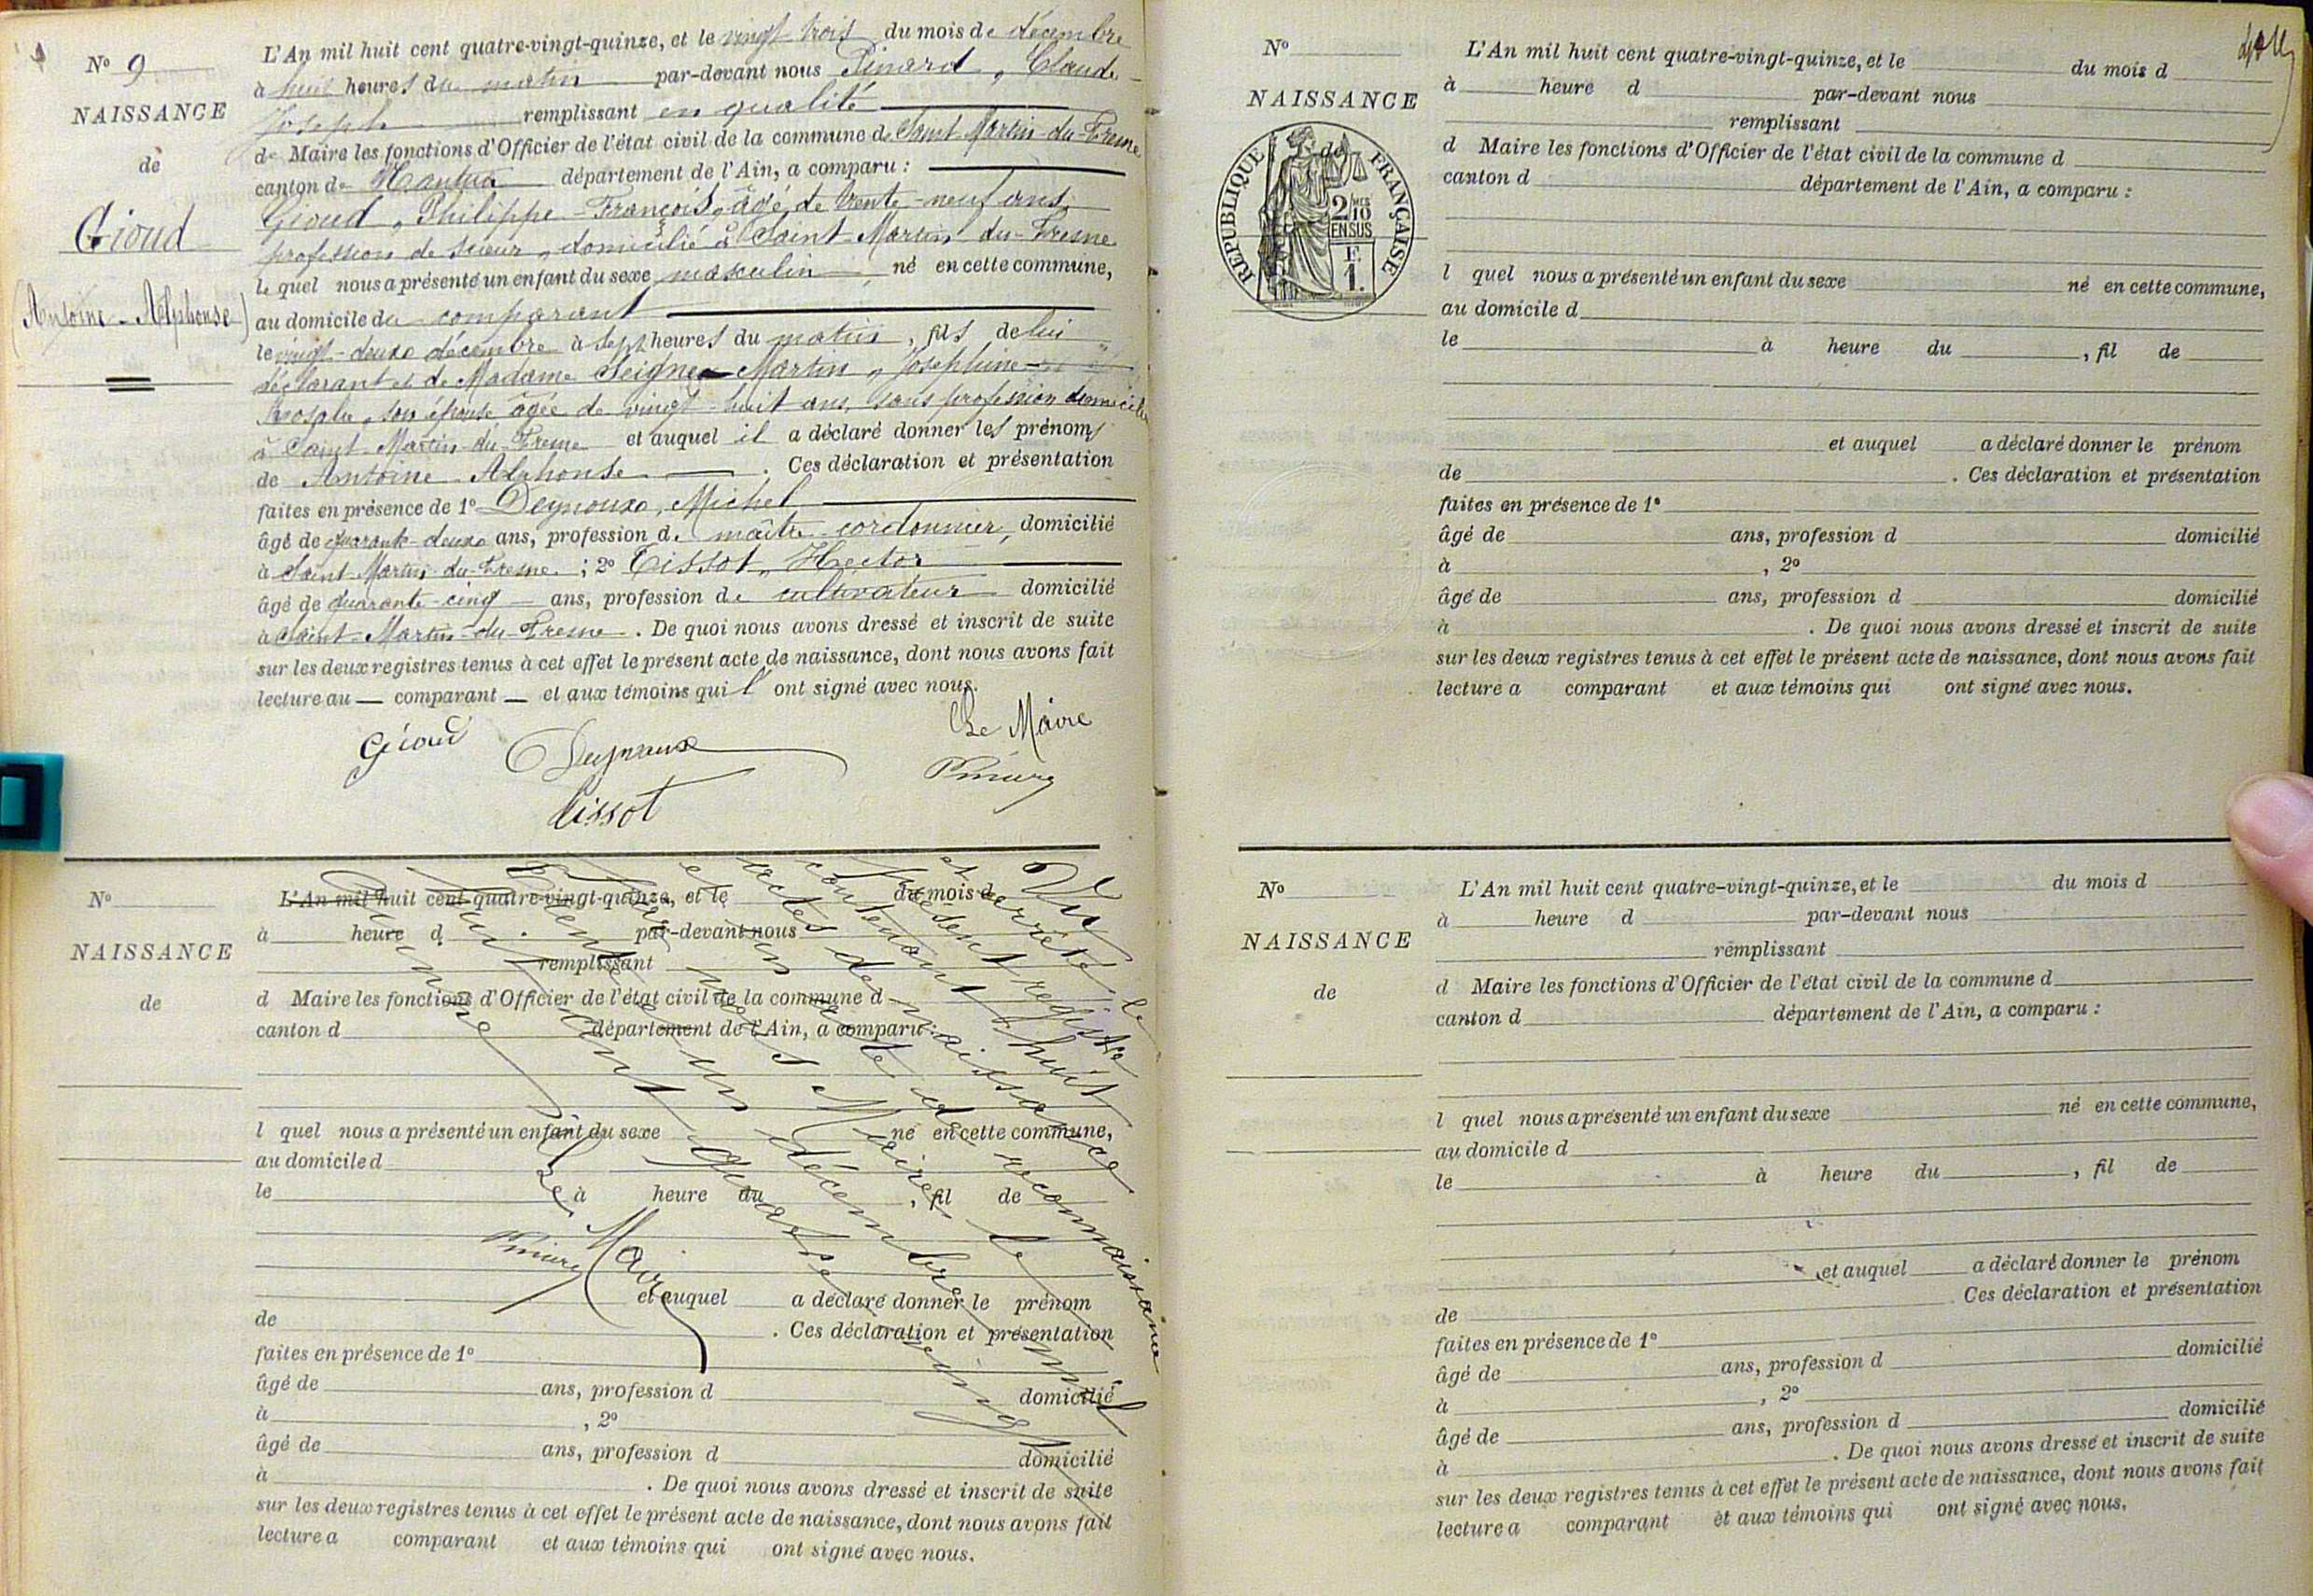 N° 9
NAISSANCE
de
Gioud
(Antoine - Alphonse)
L'An mil huit cent quatre-vingt-quinze, et le vingt trois du mois de décembre
à huit heures du matin par-devant nous Pinard, Claude
Joseph remplissant en qualité
de Maire les fonctions d'Officier de l'état civil de la commune de Saint Martin-du-Fresne
canton de Nantua département de l'Ain, a comparu :
Gioud, Philippe-François, âgé de trente-neuf ans,
profession de scieur, domicilié à Saint-Martin-du-Fresne
le quel nous a présenté un enfant du sexe masculin né en cette commune,
au domicile du comparant
le vingt-deux décembre à sept heures du matin, fils de lui
déclarant et de Madame Seigne-Martin, Joséphine
son épouse âgée de vingt-huit ans, sans profession domiciliée
à Saint Martin-du-Fresne et auquel il a déclaré donner les prénoms
de Antoine Alphonse. Ces déclaration et présentation
faites en présence de 1° Deynoux, Michel
âgé de quarante-deux ans, profession de maître cordonnier, domicilié
à Saint-Martin-du-Fresne ; 2° Tissot, Hector
âgé de quarante-cinq ans, profession de cultivateur domicilié
à Saint-Martin-du-Fresne. De quoi nous avons dressé et inscrit de suite
sur les deux registres tenus à cet effet le présent acte de naissance, dont nous avons fait
lecture au comparant et aux témoins qui l'ont signé avec nous.
Gioud Deynoux Le Maire
Tissot
N°
NAISSANCE
de
L'An mil huit cent quatre-vingt-quinze, et le du mois d
à heure d par-devant nous
remplissant
d Maire les fonctions d'Officier de l'état civil de la commune d
canton d département de l'Ain, a comparu :
l quel nous a présenté un enfant du sexe né en cette commune,
au domicile d
le à heure du , fil de
et auquel a déclaré donner le prénom
de . Ces déclaration et présentation
faites en présence de 1°
âgé de ans, profession d domicilié
à , 2°
âgé de ans, profession d domicilié
à . De quoi nous avons dressé et inscrit de suite
sur les deux registres tenus à cet effet le présent acte de naissance, dont nous avons fait
lecture a comparant et aux témoins qui ont signé avec nous.
Vu et arrêté le
présent registre
contenant huit
actes de naissance
et un acte de reconnaissance
par nous Maire, le
trente un décembre mil
huit cent quatre vingt
quinze
Le Maire
N°
NAISSANCE
de
RÉPUBLIQUE FRANÇAISE
2/10 EN SUS
F.
1.
L'An mil huit cent quatre-vingt-quinze, et le du mois d
à heure d par-devant nous
remplissant
d Maire les fonctions d'Officier de l'état civil de la commune d
canton d département de l'Ain, a comparu :
l quel nous a présenté un enfant du sexe né en cette commune,
au domicile d
le à heure du , fil de
et auquel a déclaré donner le prénom
de . Ces déclaration et présentation
faites en présence de 1°
âgé de ans, profession d domicilié
à , 2°
âgé de ans, profession d domicilié
à . De quoi nous avons dressé et inscrit de suite
sur les deux registres tenus à cet effet le présent acte de naissance, dont nous avons fait
lecture a comparant et aux témoins qui ont signé avec nous.
N°
NAISSANCE
de
L'An mil huit cent quatre-vingt-quinze, et le du mois d
à heure d par-devant nous
remplissant
d Maire les fonctions d'Officier de l'état civil de la commune d
canton d département de l'Ain, a comparu :
l quel nous a présenté un enfant du sexe né en cette commune,
au domicile d
le à heure du , fil de
et auquel a déclaré donner le prénom
de Ces déclaration et présentation
faites en présence de 1°
âgé de ans, profession d domicilié
à , 2°
âgé de ans, profession d domicilié
à . De quoi nous avons dressé et inscrit de suite
sur les deux registres tenus à cet effet le présent acte de naissance, dont nous avons fait
lecture a comparant et aux témoins qui ont signé avec nous.